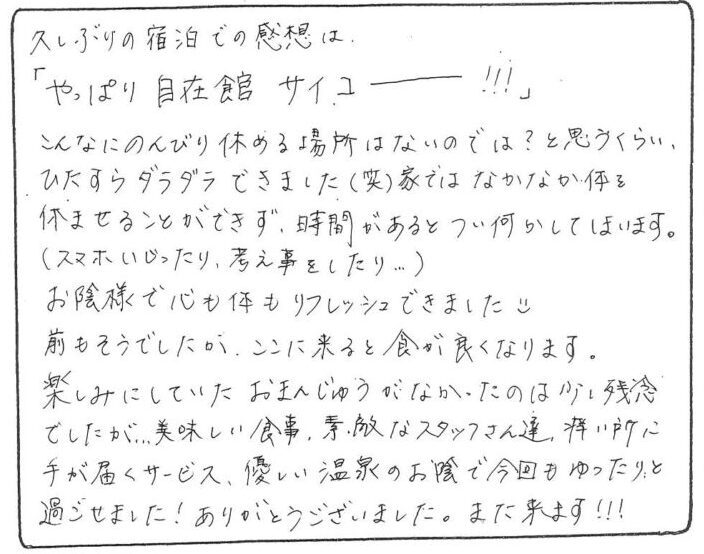 久しぶりの宿泊での感想は、
「やっぱり 自在館 サイコーーー!!!」
こんなにのんびり休める場所はないのでは?と思うくらい、
ひたすらダラダラできました(笑)家ではなかなか体を
休ませることができず、時間があるとつい何かしてしまいます。
(スマホいじったり、考え事をしたり…)
お陰様で心も体もリフレッシュできました
前もそうでしたが、ここに来ると食が良くなります。
楽しみにしていたおまんじゅうがなかったのは少し残念
でしたが…美味しい食事、素敵なスタッフさん達、痒い所に
手が届くサービス、優しい温泉のお陰で今回もゆったりと
過ごせました!ありがとうございました。また来ます!!!